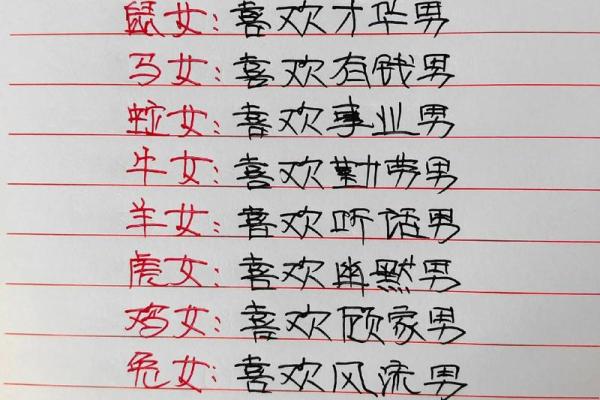 鼠女:喜欢才华男
马女:喜欢有钱男
蛇女:喜欢事业男
牛女:喜欢勤劳男
羊女:喜欢听话男
虎女:喜欢幽默男
鸡女:喜欢顾家男
兔女:喜欢风流男